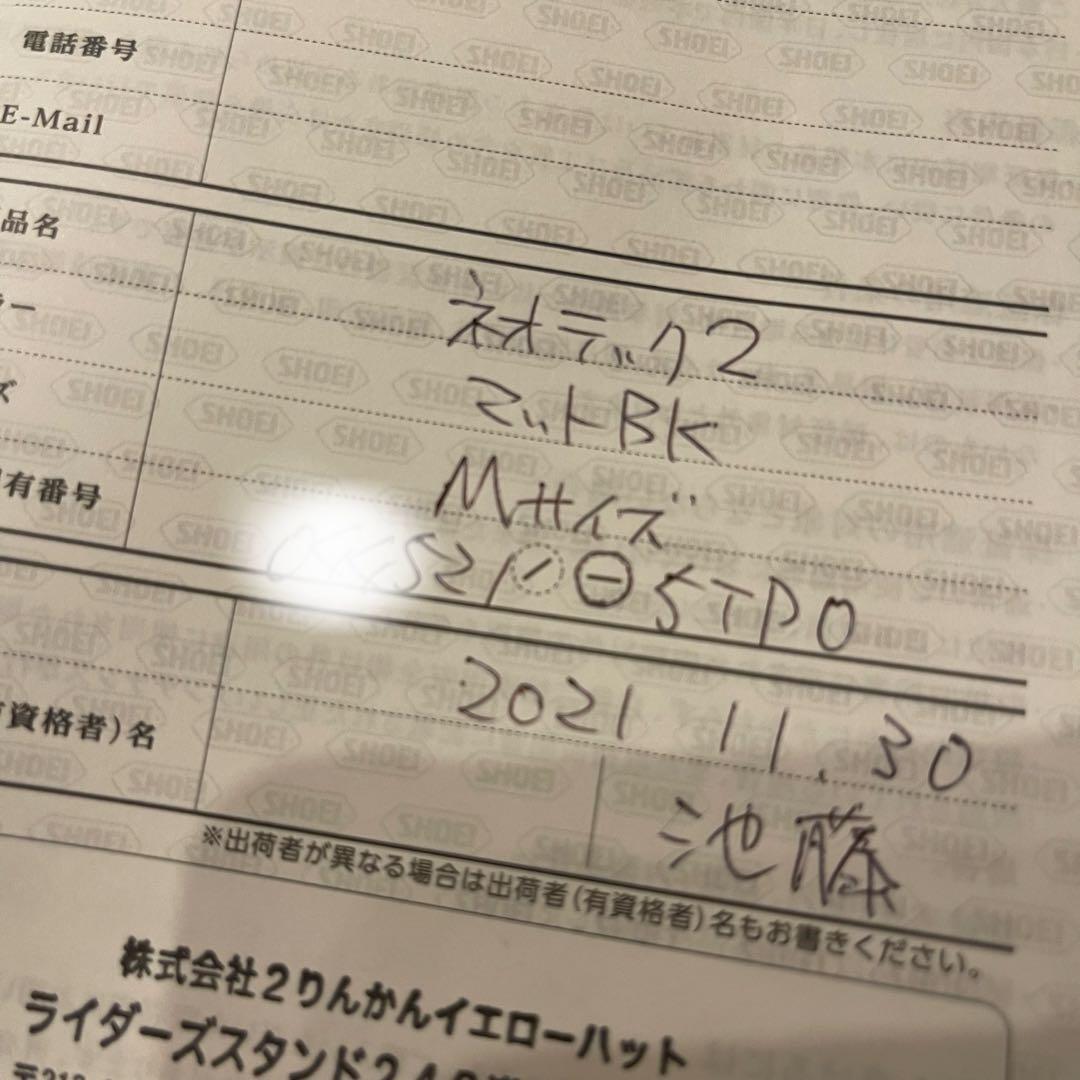 電話番号
E-Mail
品名
ネオテック2
ラー
マットBK
ズ
Mサイズ
有番号
521 5TPO
2021 11.30
有資格者)名
池藤
※出荷者が異なる場合は出荷者(有資格者)名もお書きください。
株式会社2りんかんイエローハット
ライダーズスタンド